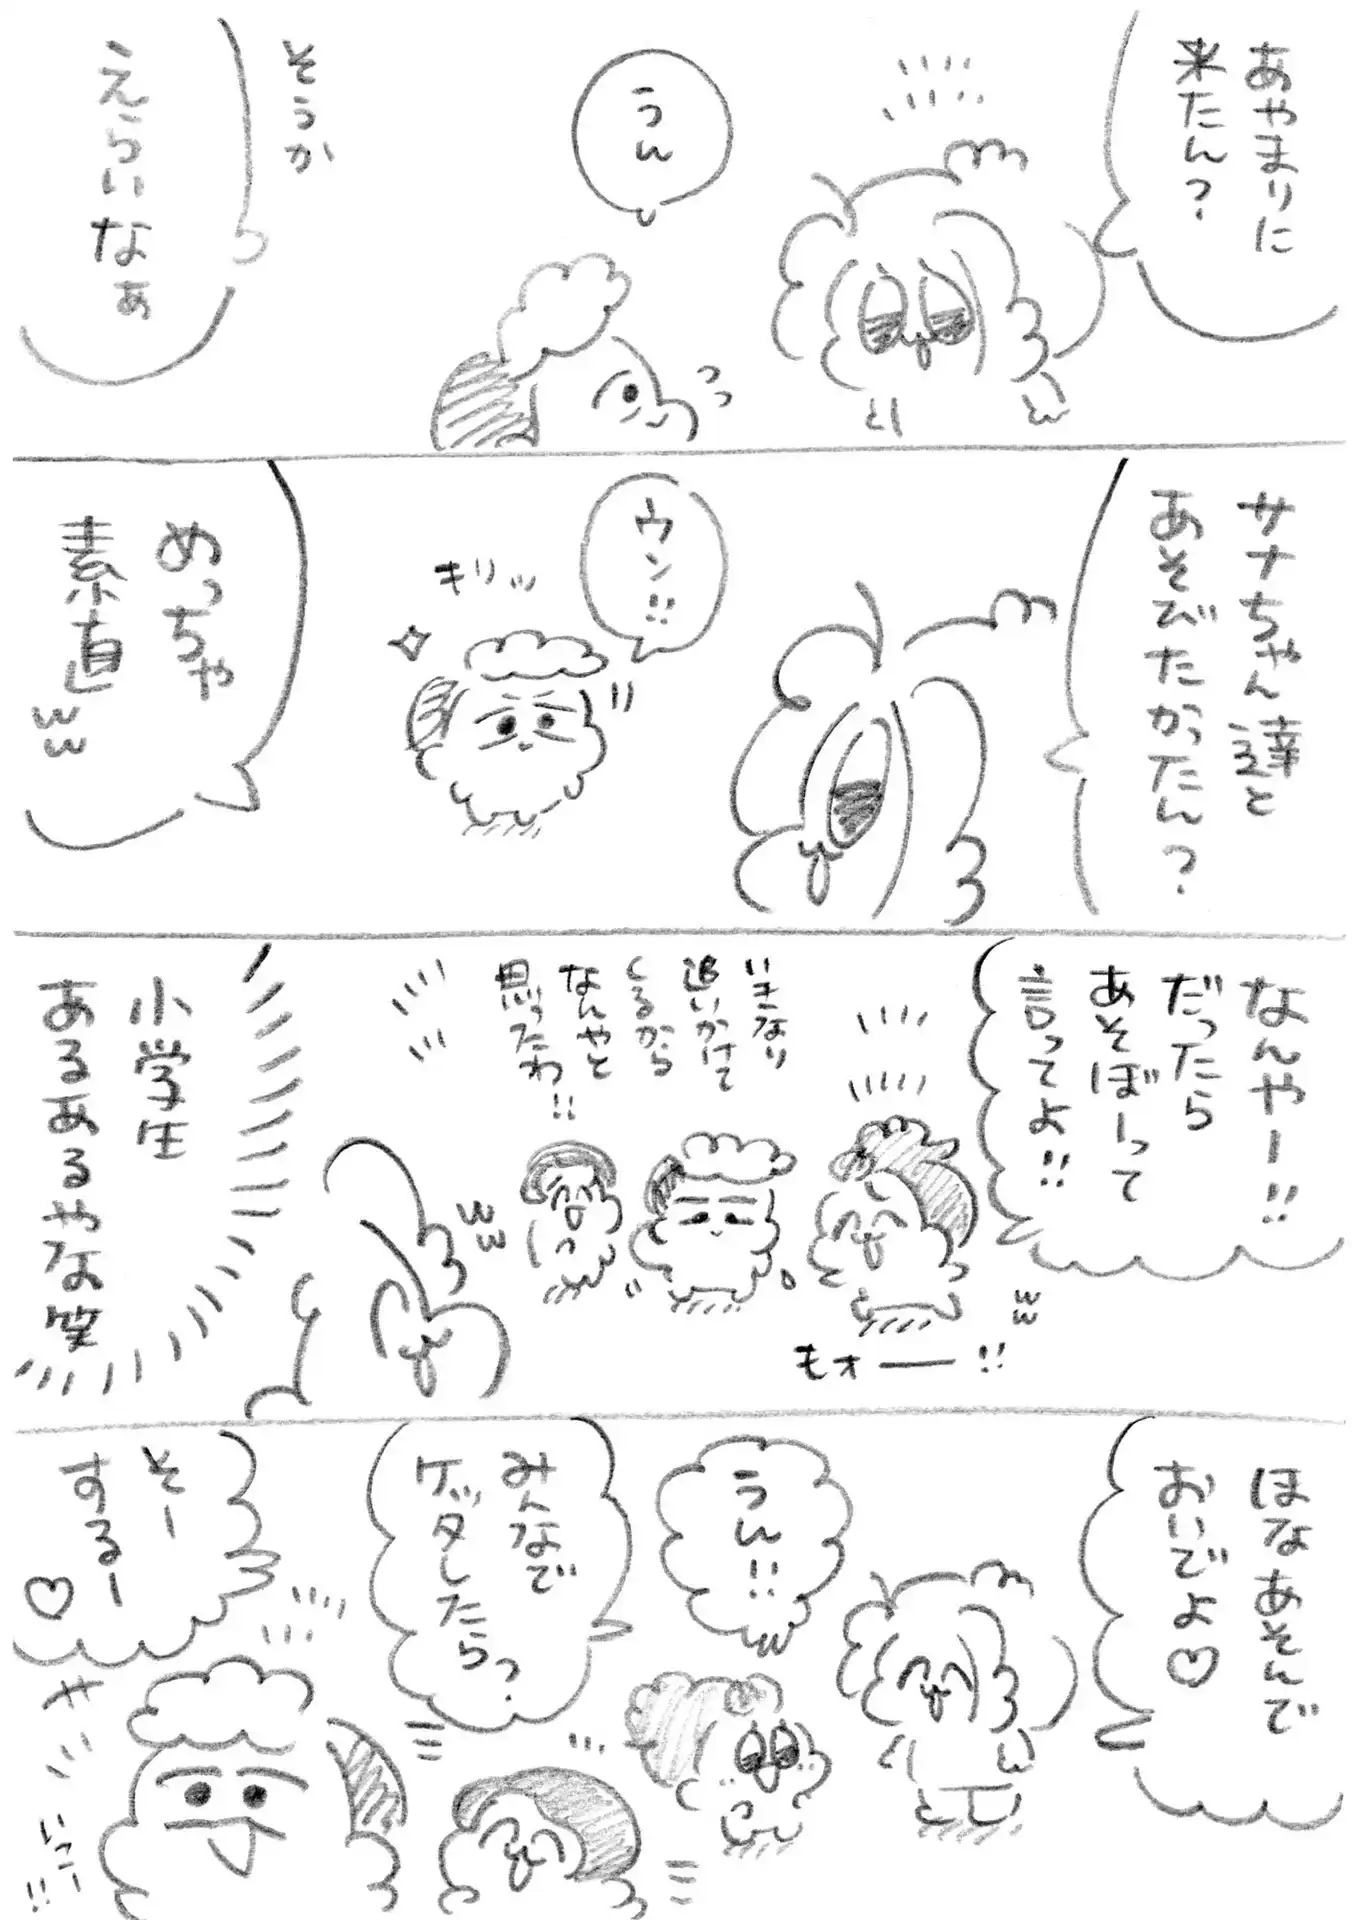 あやまりに
来たん?
うん
そうか
えらいなぁ
サナちゃん達と
あそびたかったん?
ウン!!
キリッ
めっちゃ
素直
ww
なんやー!!
だったら
あそぼーって
言ってよ!!
ww
もォー!!
いきなり
追いかけて
くるから
なんやと
思ったわ!!
ww
小学生
あるあるやな笑
ほなあそんで
おいでよ♡
うん!!
みんなで
ゲッタしたらっ?
そー
するー
♡
いっこー
!!